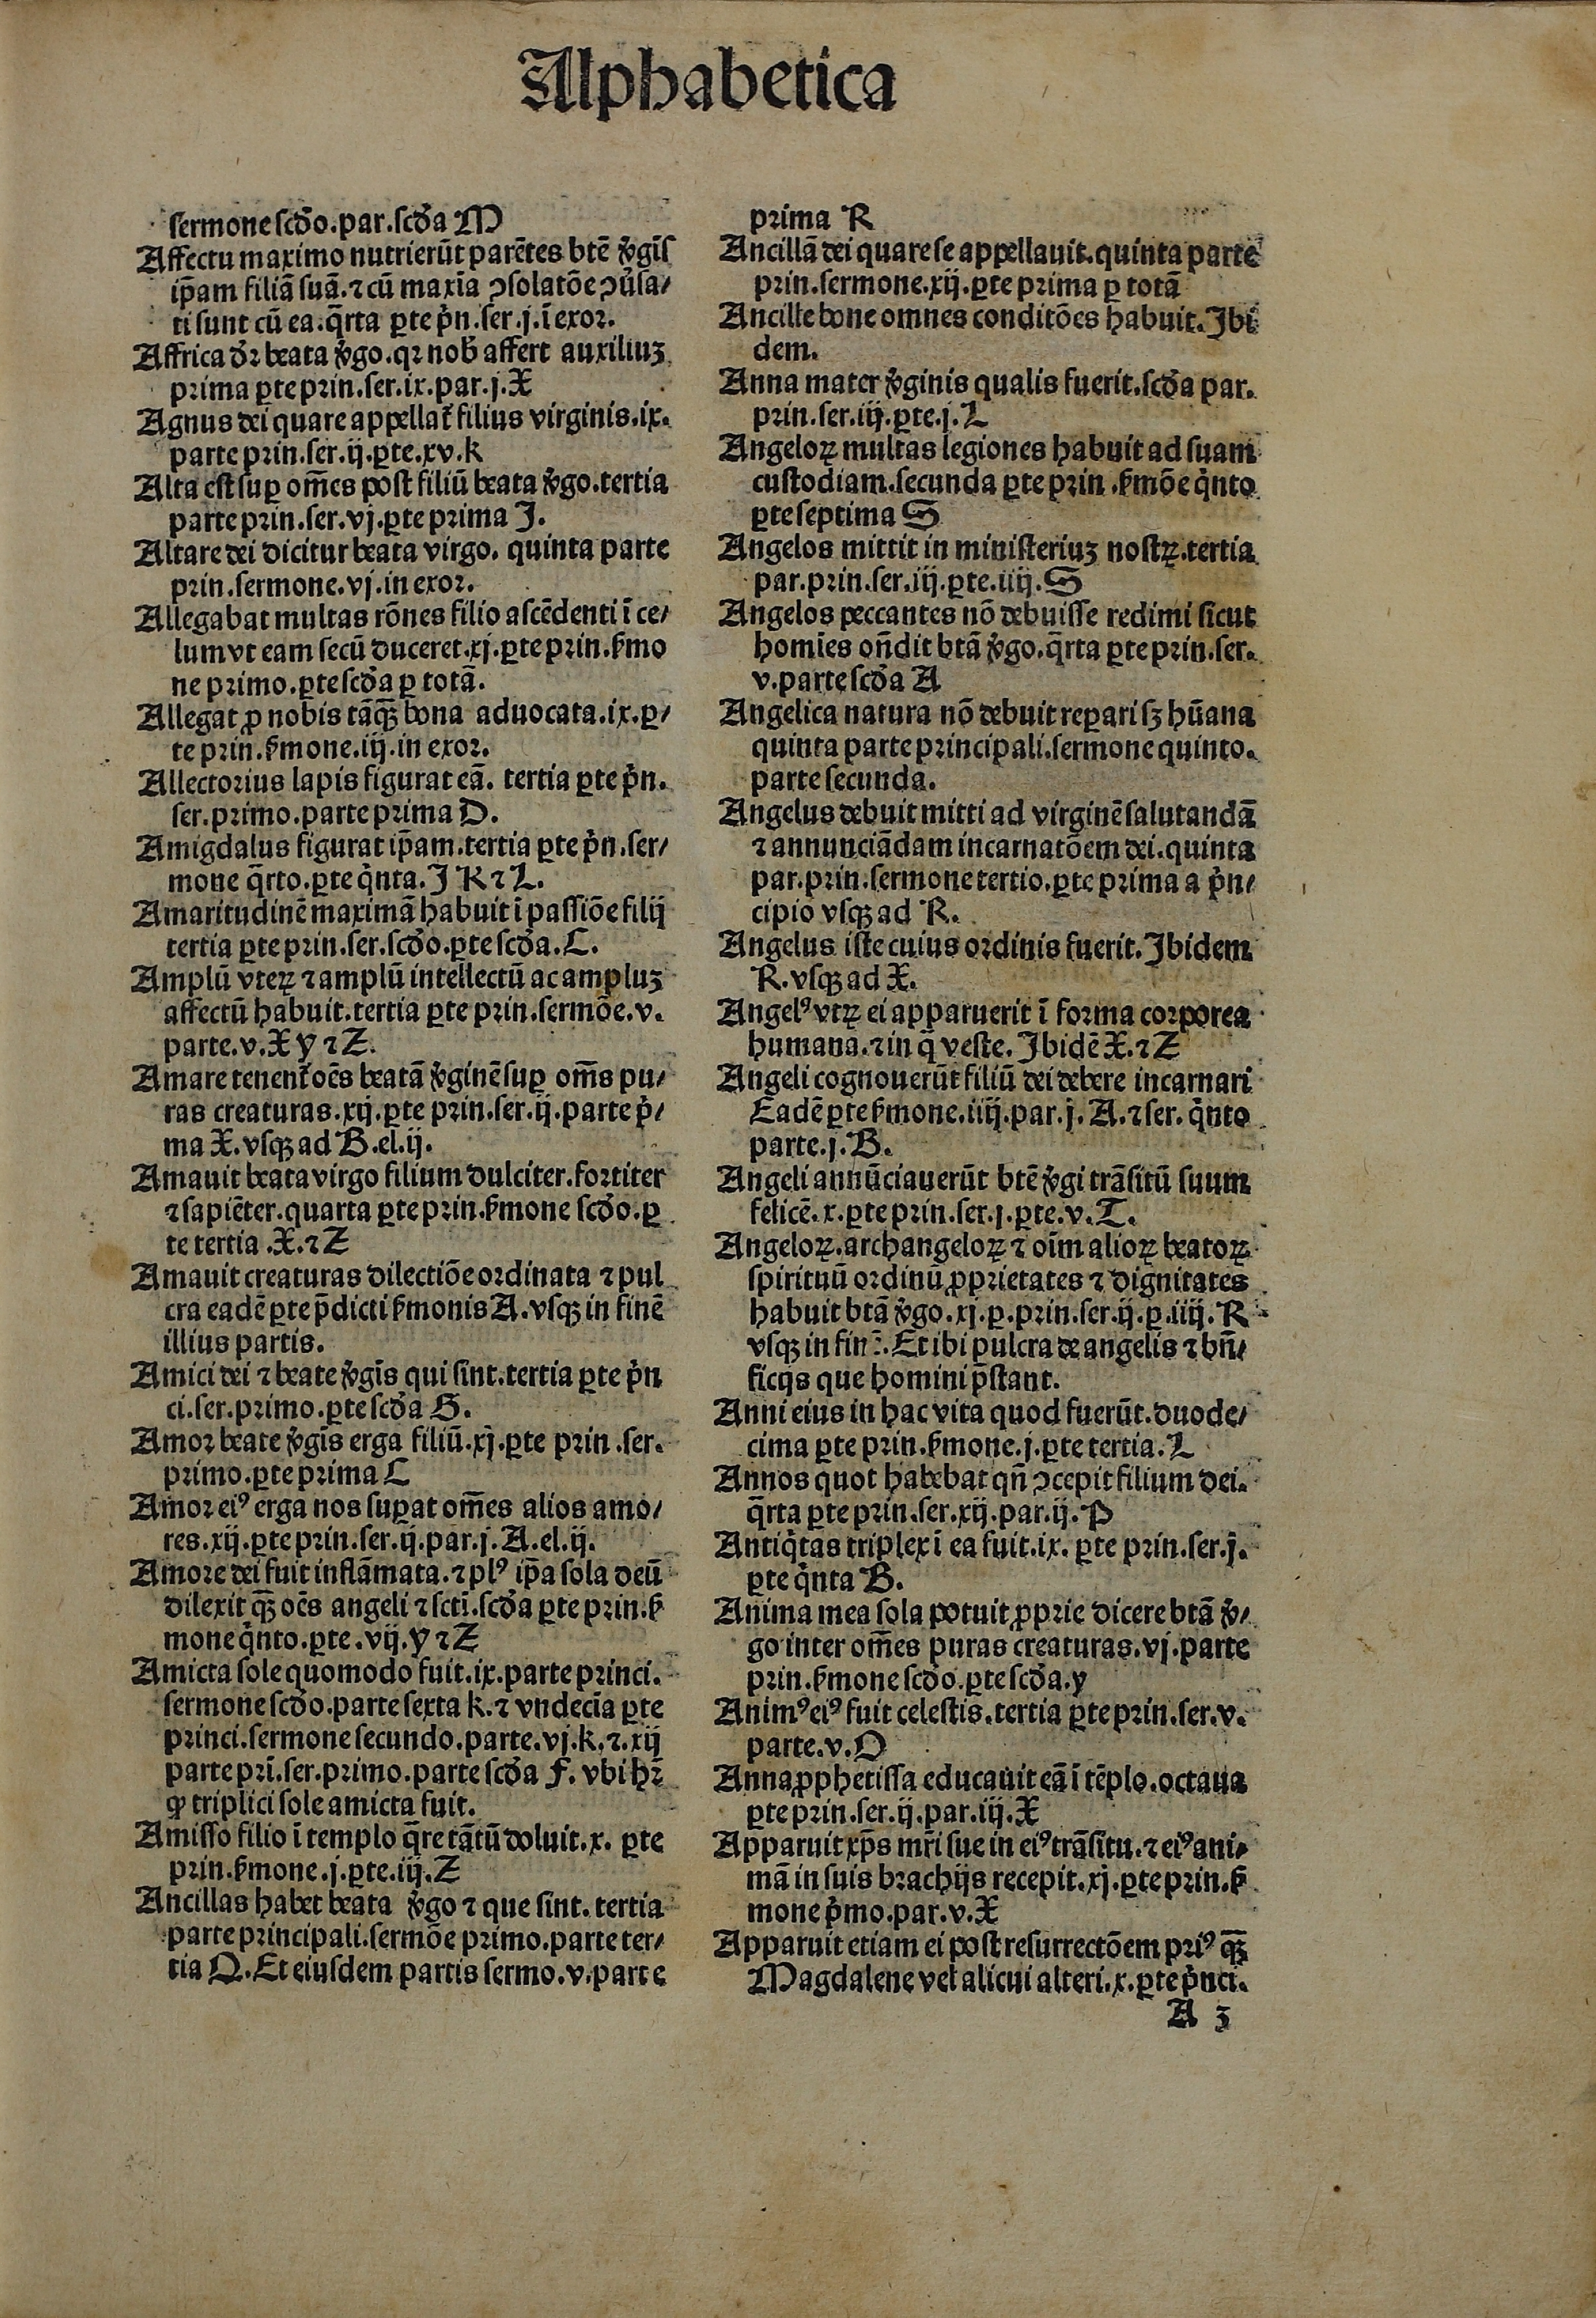 Alphabetica
sermone scďo.par.scďa M
Affectu maximo nutrierūt parētes btē ꝟgis̄
ip̄am filiā suā.⁊ cū maxīa ꝯsolatōe ꝯu̓sa⸗
ti sunt cū ea.q̄rta ꝑte pͥn.ser.j.ī exoꝛ.
Affrica dꝛ̄ beata ꝟgo.qꝛ nob̓ affert auxiliuꝫ
prima ꝑte prin.ser.ix.par.j.X
Agnus dei quare appellat᷑ filius virginis.ix.
parte prin.ser.ij.ꝑte.xv.k
Alta est suꝑ om̄es post filiū beata ꝟgo.tertia
parte prin.ser.vj.ꝑte prima J.
Altare dei dicitur beata virgo. quinta parte
prin.sermone.vj.in exoꝛ.
Allegabat multas rōnes filio ascēdenti ī ce⸗
lum vt eam secū duceret.xj.ꝑte prin.ẜmo
ne primo.ꝑte scďa ꝑ totā.
Allegat ꝓ nobis tāqꝫ̄ bona aduocata.ix.ꝑ⸗
te prin.ẜmone.iij.in exoꝛ.
Allectorius lapis figurat eā. tertia ꝑte pͥn.
ser.primo.parte prima D.
Amigdalus figurat ip̄am.tertia ꝑte pͥn.ser⸗
mone q̄rto.ꝑte qͥnta.J K ⁊ L.
Amaritudinē maximā habuit ī passiōe filij
tertia ꝑte prin.ser.scďo.ꝑte scďa.C.
Amplū vteꝝ ⁊ amplū intellectū ac ampluꝫ
affectū habuit.tertia ꝑte prin.sermōe.v.
parte.v.X y ⁊ Z.
Amare tenent᷑ oēs beatā ꝟginē suꝑ om̄s pu⸗
ras creaturas.xij.ꝑte prin.ser.ij.parte pͥ⸗
ma X.vsqꝫ ad B.el.ij.
Amauit beata virgo filium dulciter.fortiter
⁊ sapiēter.quarta ꝑte prin.ẜmone scďo.ꝑ
te tertia .X.⁊ Z
Amauit creaturas dilectiōe ordinata ⁊ pul
cra eadē ꝑte p̄dicti ẜmonis A.vsqꝫ in finē
illius partis.
Amici dei ⁊ beate ꝟgis̄ qui sint.tertia ꝑte pͥn
ci.ser.primo.ꝑte scďa G.
Amoꝛ beate ꝟgis̄ erga filiū.xj.ꝑte prin.ser.
primo.ꝑte prima C
Amoꝛ eiꝰ erga nos suꝑat om̄es alios amo⸗
res.xij.ꝑte prin.ser.ij.par.j.A.el.ij.
Amore dei fuit inflāmata.⁊ plꝰ ip̄a sola deū
dilexit qꝫ̄ oēs angeli ⁊ scti̅.scďa ꝑte prin.ẜ
mone qͥnto.ꝑte.vij.y ⁊ Z
Amicta sole quomodo fuit.ix.parte princi.
sermone scďo.parte sexta k.⁊ vndecīa ꝑte
princi.sermone secundo.parte.vj.k.⁊.xij
parte pri̅.ser.primo.parte scďa F. vbi hꝛ̄
ꝙ triplici sole amicta fuit.
Amisso filio ī templo q̄re tātū doluit.x. ꝑte
prin.ẜmone.j.ꝑte.iij.Z
Ancillas habet beata ꝟgo ⁊ que sint. tertia
parte principali.sermōe primo.parte ter⸗
tia Q.Et eiusdem partis sermo.v.parte
prima R
Ancillā dei quare se appellauit.quinta parte
prin.sermone.xij.ꝑte prima ꝑ totā
Ancille bone omnes conditōes habuit.Jbi
dem.
Anna mater ꝟginis qualis fuerit.scďa par.
prin.ser.iij.ꝑte.j.L
Angeloꝝ multas legiones habuit ad suam
custodiam.secunda ꝑte prin.ẜmōe qͥnto
ꝑte septima S
Angelos mittit in ministeriuꝫ nostꝝ.tertia
par.prin.ser.iij.ꝑte.iiij.S
Angelos peccantes nō debuisse redimi sicut
homi̅es on̄dit btā ꝟgo.q̄rta ꝑte prin.ser.
v.parte scďa A
Angelica natura nō debuit reparari sꝫ hūana
quinta parte principali.sermone quinto.
parte secunda.
Angelus debuit mitti ad virginē salutandā
⁊ annunciādam incarnatōem dei.quinta
par.prin.sermone tertio.ꝑte prima a pͥn⸗
cipio vsqꝫ ad R.
Angelus iste cuius ordinis fuerit.Jbidem
R.vsqꝫ ad X.
Angelꝰ vtꝝ ei apparuerit ī forma corporea
humana.⁊ in q̄ veste.Jbidē X.⁊ Z
Angeli cognouerūt filiū dei debere incarnari
Eadē ꝑte ẜmone.iiij.par.j.A.⁊ ser. qͥnto
parte.j.B.
Angeli annūciauerūt btē ꝟgi trāsitū suum
felicē.x.ꝑte prin.ser.j.ꝑte.v.T.
Angeloꝝ.archangeloꝝ ⁊ oīm alioꝝ beatoꝝ
spirituū ordinū ꝓprietates ⁊ dignitates
habuit btā ꝟgo.xj.ꝑ.prin.ser.ij.ꝑ.iiij.R
vsqꝫ in finē.Et ibi pulcra de angelis ⁊ bn̄⸗
ficijs que homini p̄stant.
Anni eius in hac vita quod fuerūt.duode⸗
cima ꝑte prin.ẜmone.j.ꝑte tertia.L
Annos quot habebat qn̄ ꝯcepit filium dei.
q̄rta ꝑte prin.ser.xij.par.ij.P
Antiqͥtas triplex ī ea fuit.ix. ꝑte prin.ser.j.
ꝑte qͥnta B.
Anima mea sola potuit ꝓprie dicere btā ꝟ⸗
go inter om̄es puras creaturas.vj.parte
prin.ẜmone scďo.ꝑte scďa.y
Animꝰ eiꝰ fuit celestis.tertia ꝑte prin.ser.v.
parte.v.O
Anna ꝓphetissa educauit eā ī tēplo.octaua
ꝑte prin.ser.ij.par.iij.X
Apparuit xp̄s mr̄i sue in eiꝰ trāsitu.⁊ eiꝰ ani⸗
mā in suis brachijs recepit.xj.ꝑte prin.ẜ
mone pͥmo.par.v.X
Apparuit etiam ei post resurrectōem priꝰ qꝫ̄
Magdalene vel alicui alteri.x.ꝑte pͥnci.
A 3